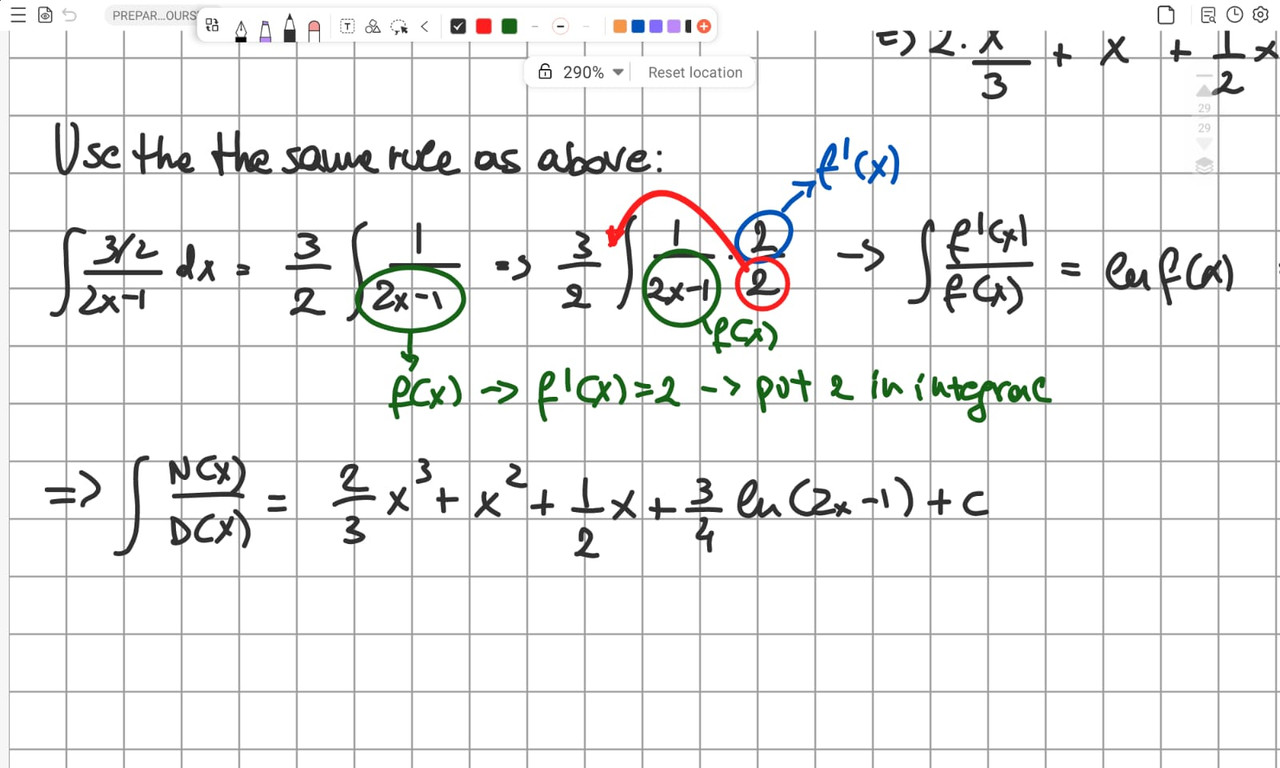 PREPAR...OURS
T
290% Reset location
E) 2. x/3 + x + 1/2 x
29
29
Use the the same rule as above:
f'(x)
∫ (3/2)/(2x-1) dx = 3/2 ∫ 1/(2x-1) => 3/2 ∫ 1/(2x-1) · 2/2 -> ∫ f'(x)/f(x) = ln f(x) =
f(x)
f(x) -> f'(x)=2 -> put 2 in integral
=> ∫ N(x)/D(x) = 2/3 x³ + x² + 1/2 x + 3/4 ln(2x-1) + c